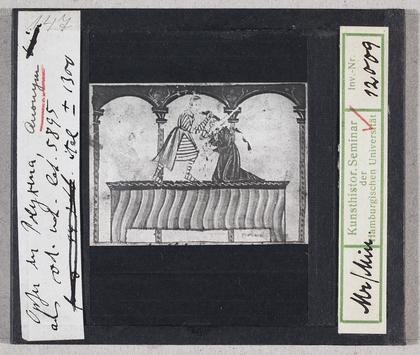 147
Opfer der Polyxena Anonym
als cod. vat. lat. 5895
Ital ± 1300
Kunsthistor. Seminar
der
Hamburgischen Universität
Inv.-Nr.
12009